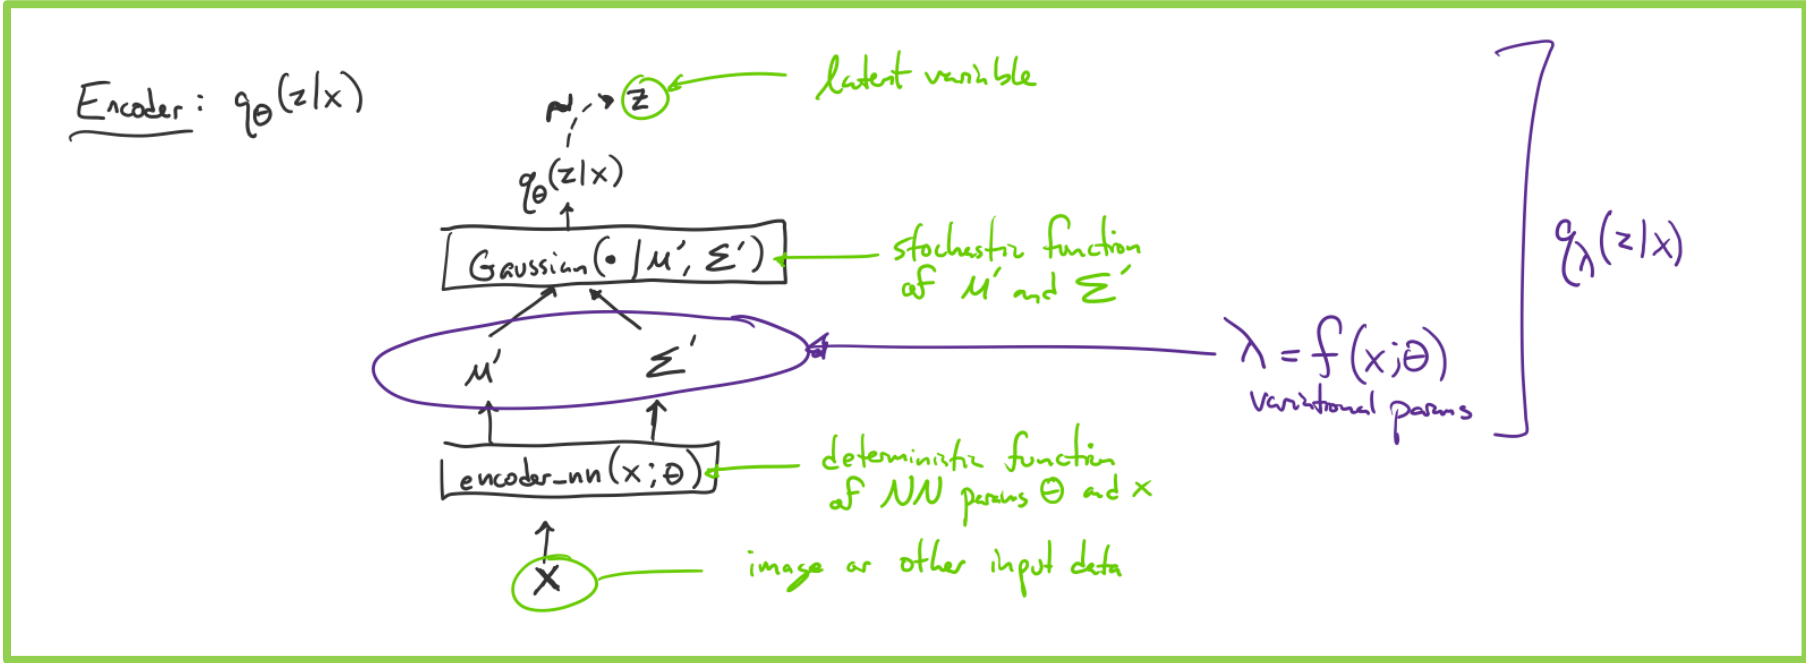 Encoder: qθ(z|x)
~ z
latent variable
qθ(z|x)
Gaussian(• | μ', Σ')
stochastic function
of μ' and Σ'
qλ(z|x)
μ' Σ'
λ = f(x;θ)
variational params
encoder_nn(x;θ)
deterministic function
of NN params θ and x
x
image or other input data